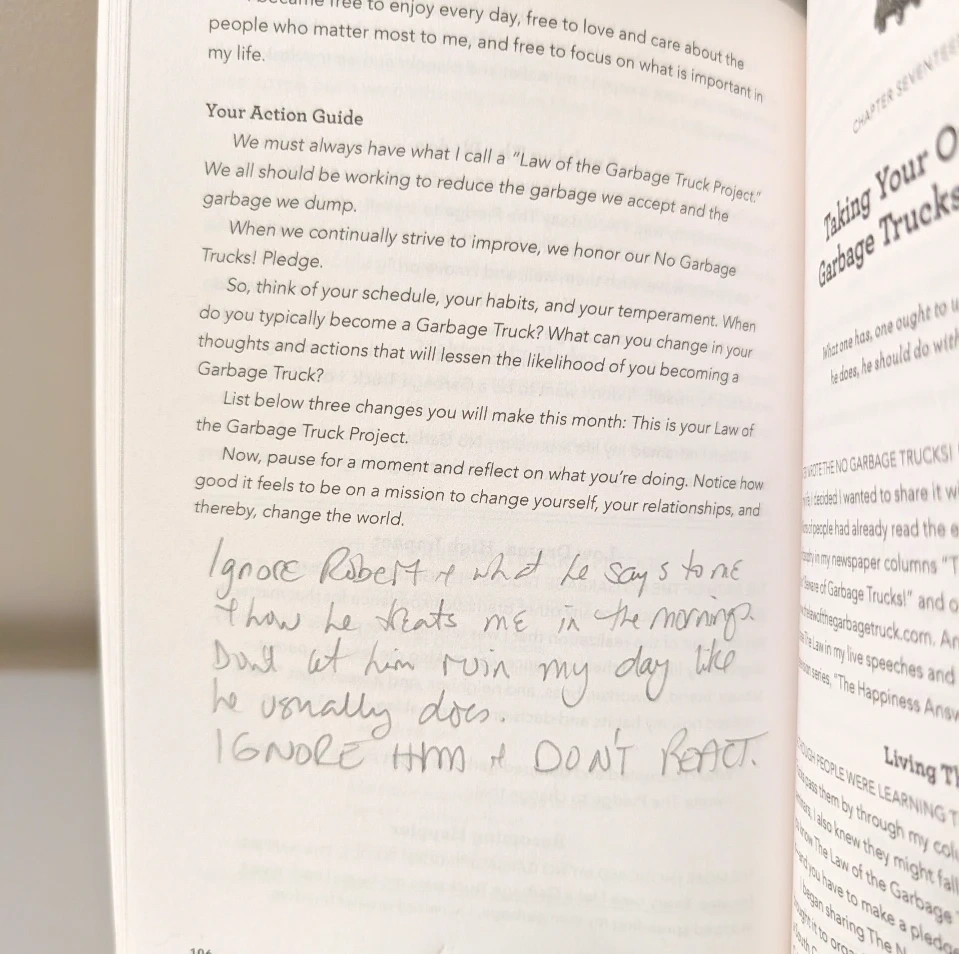 free to enjoy every day, free to love and care about the
people who matter most to me, and free to focus on what is important in
my life.
Your Action Guide
We must always have what I call a “Law of the Garbage Truck Project.”
We all should be working to reduce the garbage we accept and the
garbage we dump.
When we continually strive to improve, we honor our No Garbage
Trucks! Pledge.
So, think of your schedule, your habits, and your temperament. When
do you typically become a Garbage Truck? What can you change in your
thoughts and actions that will lessen the likelihood of you becoming a
Garbage Truck?
List below three changes you will make this month: This is your Law of
the Garbage Truck Project.
Now, pause for a moment and reflect on what you're doing. Notice how
good it feels to be on a mission to change yourself, your relationships, and
thereby, change the world.
Ignore Robert & what he says to me
& how he treats me in the mornings.
Don't let him ruin my day like
he usually does.
IGNORE HIM & DON'T REACT.
CHAPTER
Taking Your
Garbage Trucks
What one has, one ought to
he does, he should do with
THE NO GARBAGE TRUCKS!
I decided I wanted to share it
people had already read the
in my newspaper columns
of Garbage Trucks!” and
garbagetruck.com.
The Law in my live speeches and
series, “The Happiness
Living
PEOPLE WERE LEARNING
pass them by through my
I also knew they might
know The Law of the Garbage
you have to make a
I began sharing The
it to